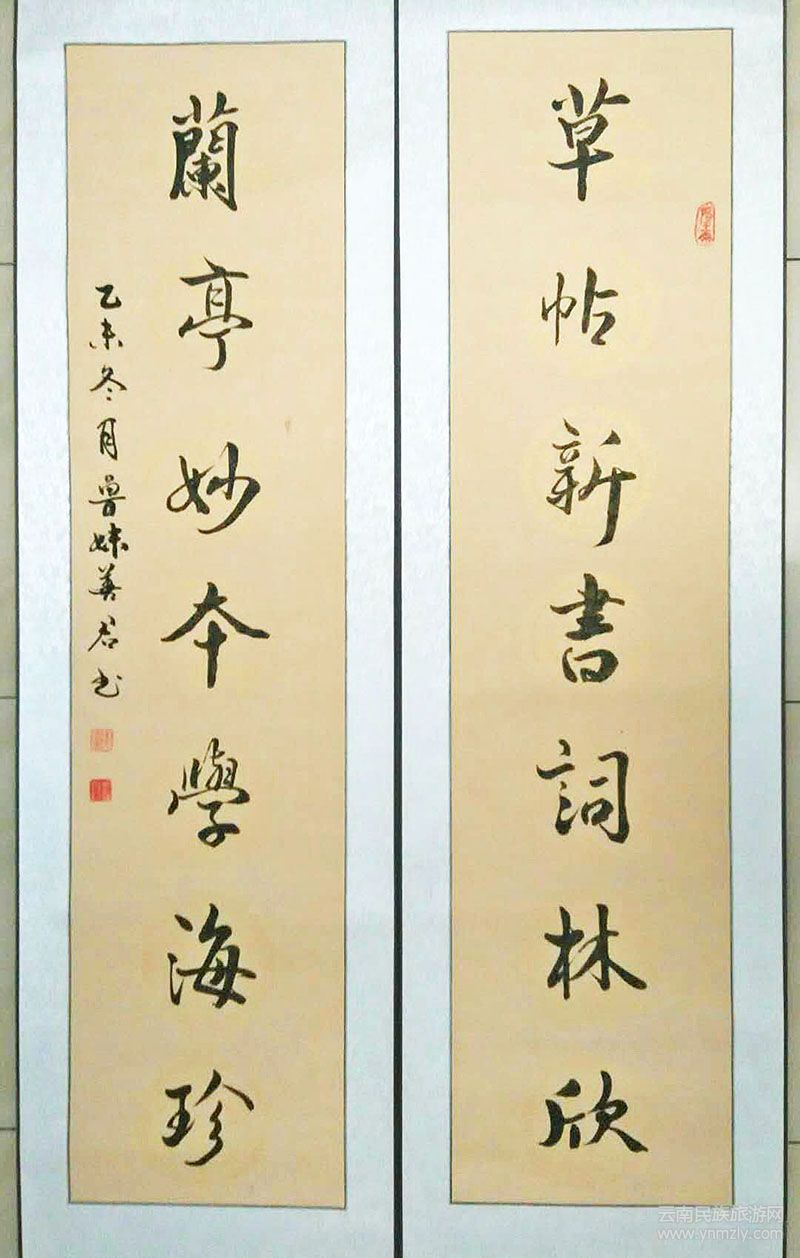 草帖新書詞林欣
蘭亭妙本學海珍
乙未冬月曾妹善君书
云南民族旅游网
www.ynmzly.com